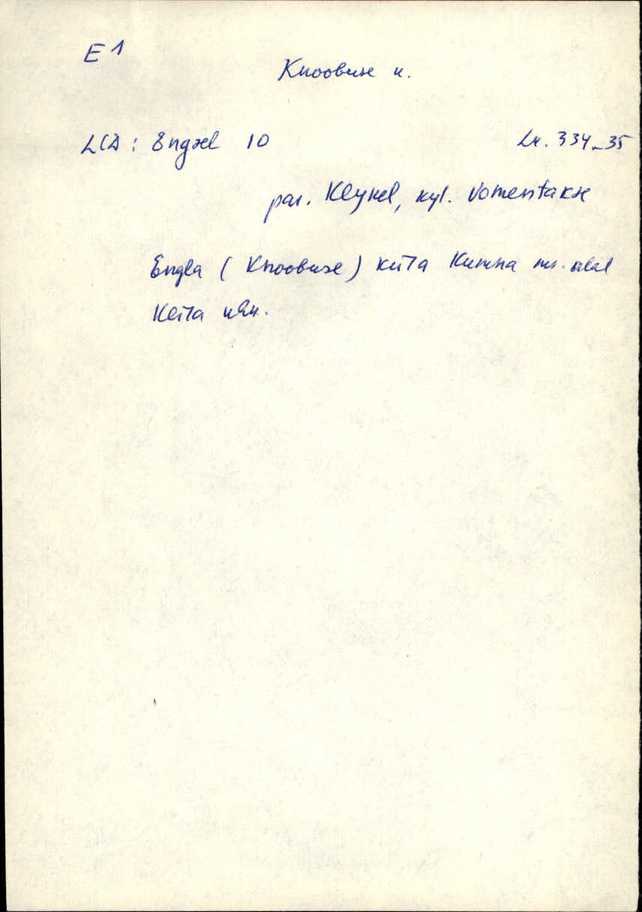 E 1
Knoobuse k.
LCD : Engæl 10 Lk. 334-35
par. Keykel, kyl. Vomentakæ
Engla (Knoobuse) küla Kumna ms. alal
Keila khk.